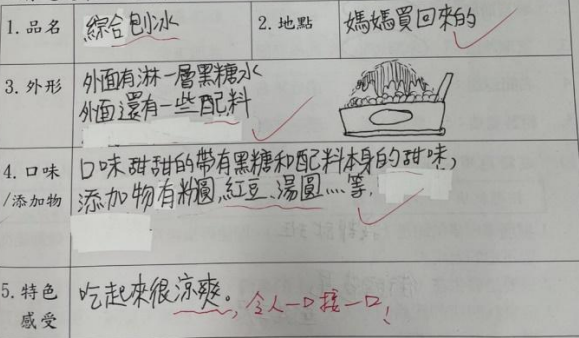 1.品名
綜合刨冰
2.地點
媽媽買回來的
3.外形
外面有淋一層黑糖水
外面還有一些配料
4.口味
/添加物
口味甜甜的帶有黑糖和配料本身的甜味,
添加物有粉圓,紅豆、湯圓……等,
5.特色
感受
吃起來很涼爽。,令人一口接一口!